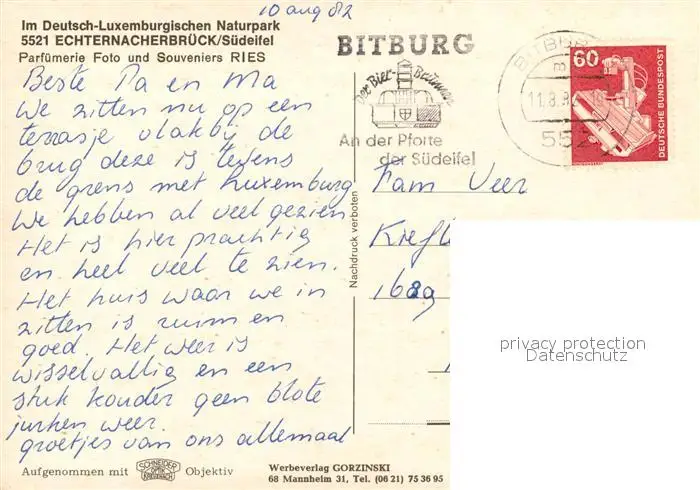 10 aug 82
Im Deutsch-Luxemburgischen Naturpark
5521 ECHTERNACHERBRÜCK/Südeifel
Parfümerie Foto und Souveniers RIES
Beste Pa en Ma
We zitten nu op een
terrasje vlakby de
brug deze is tevens
de grens met Luxemburg
We hebben al veel gezien
Het is hier prachtig
en heel veel te zien.
Het huis waar we in
zitten is ruim en
goed. Het weer is
wisselvallig en een
stuk kouder geen blote
jurken weer.
groetjes van ons allemaal
Aufgenommen mit SCHNEIDER KREUZNACH Objektiv
Nachdruck verboten
BITBURG
Der Bier-Brunnen
An der Pforte
der Südeifel
BITBURG
11.8.8
552
60
DEUTSCHE BUNDESPOST
Fam Veer
1689
privacy protection
Datenschutz
Werbeverlag GORZINSKI
68 Mannheim 31, Tel. (06 21) 75 36 95